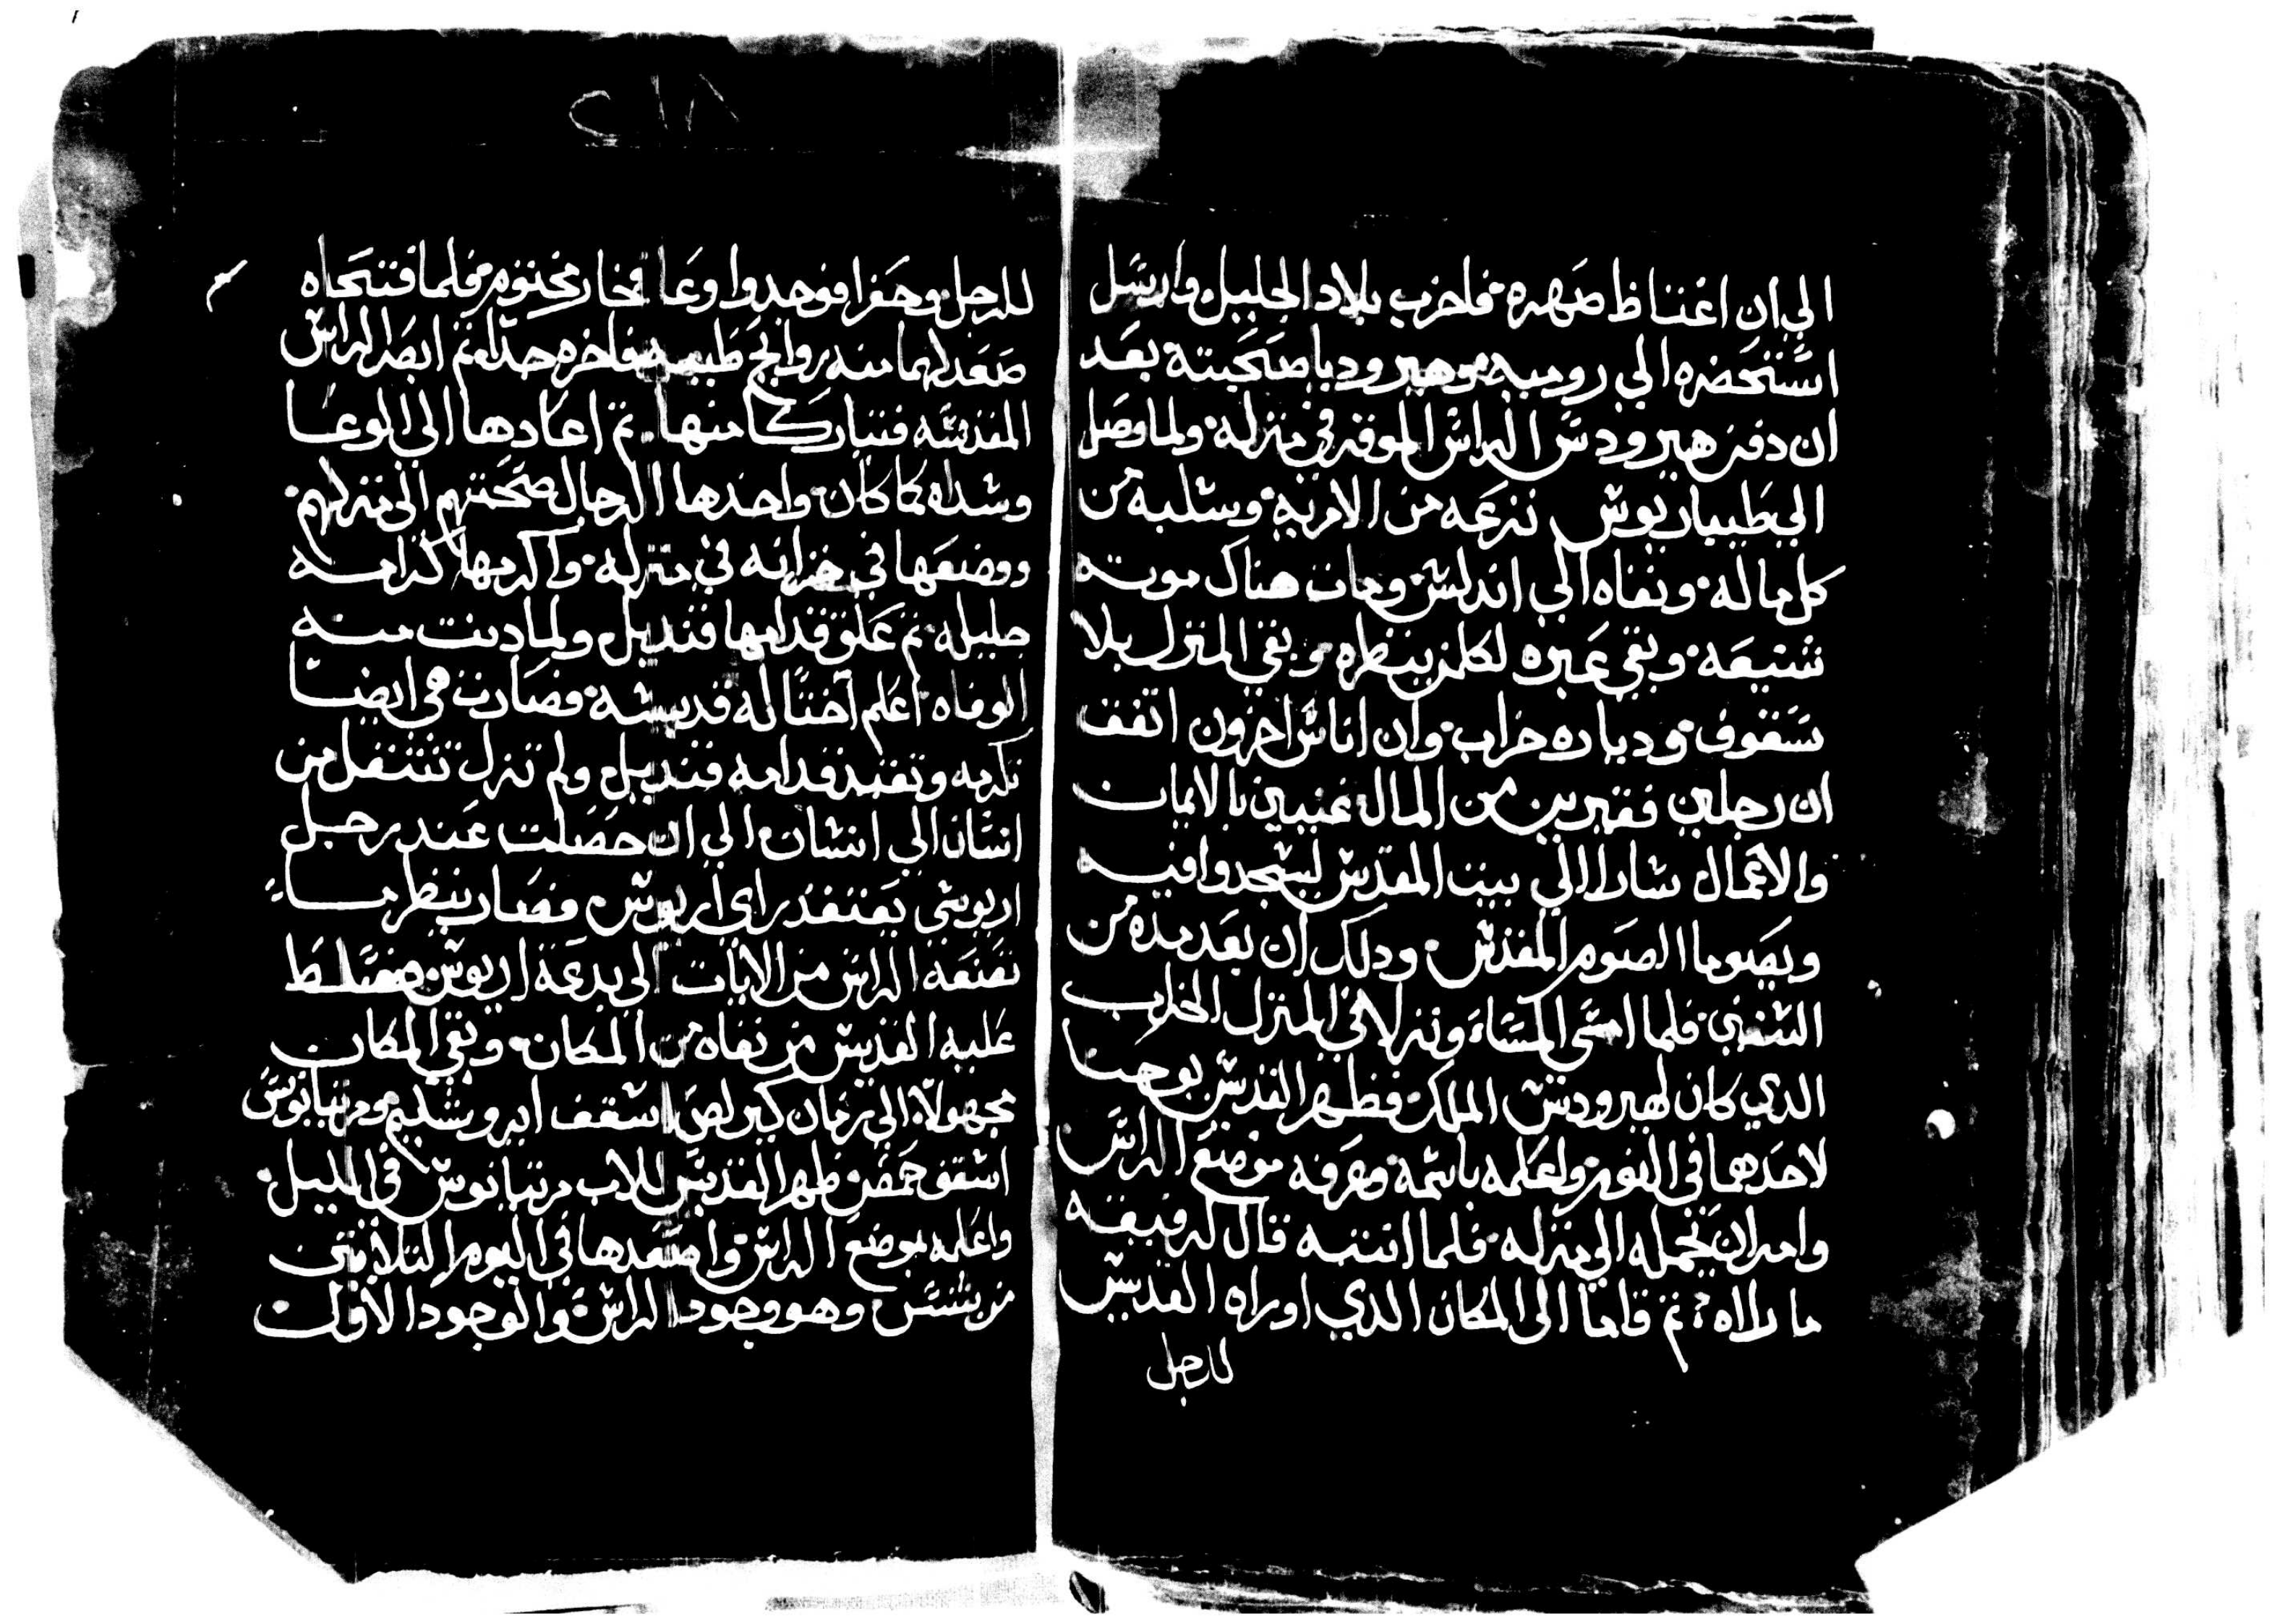 الي ان اغتاظ صهره فاخرب بلاد الجليل وارسل
استحضره الي رومية وهيروديا صحبته بعد
ان دفن هيرودس الراس الموقر في منزله ولما وصل
الي طيباريوس نزعه من الامرية وسلبه من
كل ماله ونفاه الي اندلس ومات هناك موته
شنيعه وبقي عبره لكلمن ينظره وبقي المنزل بلا
سقوف ودياره خراب وان اناس اخرون اتفق
ان رجلين فقيرين من المال غنيين بالايمان
والاعمال سارا الي بيت المقدس ليسجدوا فيه
ويصوما الصوم المقدس ودلك ان بعد مده من
السنين فلما امسي المساء ونزلا في المنزل الخراب
الدي كان لهيرودس الملك فظهر القديس يوحنا
لاحدهما في النوم واعلمه باسمه وعرفه موضع الراس
وامر ان يحمله الي منزله فلما انتبه قال لرفيقه
ما راه تم قاما الي المكان الدي اوراه القديس
للرجل
٢١٨
للرجل وحفرا فوجدوا وعا فخار مختوم فلما فتحاه
صعد لهما منه روايح طيبه فاخره جدا تم ابصرا الراس
المقدسه فتباركا منها تم اعادها الي الوعا
وشداه كما كان واخدها الرجال صحبتهم الي منزلهم
ووضعها في خزانه في منزله واكرمها كرامه
جليله تم علق قدامها قنديل ولما دنت منه
الوفاه اعلم اختا له قديسه فصارت هي ايضا
تكرمه وتقيد قدامه قنديل ولم تزل تنتقل من
انسان الي انسان الي ان حصلت عند رجل
اريوسي يعتقد راي اريوس فصار ينظر ما
تصنعه الراس من الايات الي بدعة اريوس فسلط
عليه القديس من نفاه من المكان وبقي المكان
مجهولا الي زمان كيرلص اسقف ايروشليم ومرتيانوس
اسقف حمص ظهر القديس للاب مرتيانوس في الليل
واعلمه بموضع الراس واصعدها في اليوم التلاتين
من بشنس وهو وجود الراس والوجود الاول